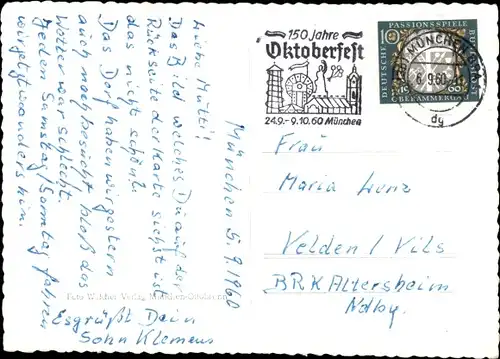 München 5.9.1960
Liebe Mutti!
Das Bild welches Du auf der
Rückseite der Karte siehst ist
das nicht schön?
Das Dorf haben wir gestern
auch noch besucht bloß das
Wetter war schlecht.
Jeden Samstag/Sonntag fahren
wir jetzt wo anders hin.
Es grüßt Dein
Sohn Klemens
Foto Verlag, München
150 Jahre
Oktoberfest
24.9.-9.10.60 München
PASSIONSSPIELE
DEUTSCHE BUNDESPOST
10
1960
OBERAMMERGAU
MÜNCHEN
6.9.60
dg
Frau
Maria Lenz
Velden / Vils
BRK Altersheim
Ndby.